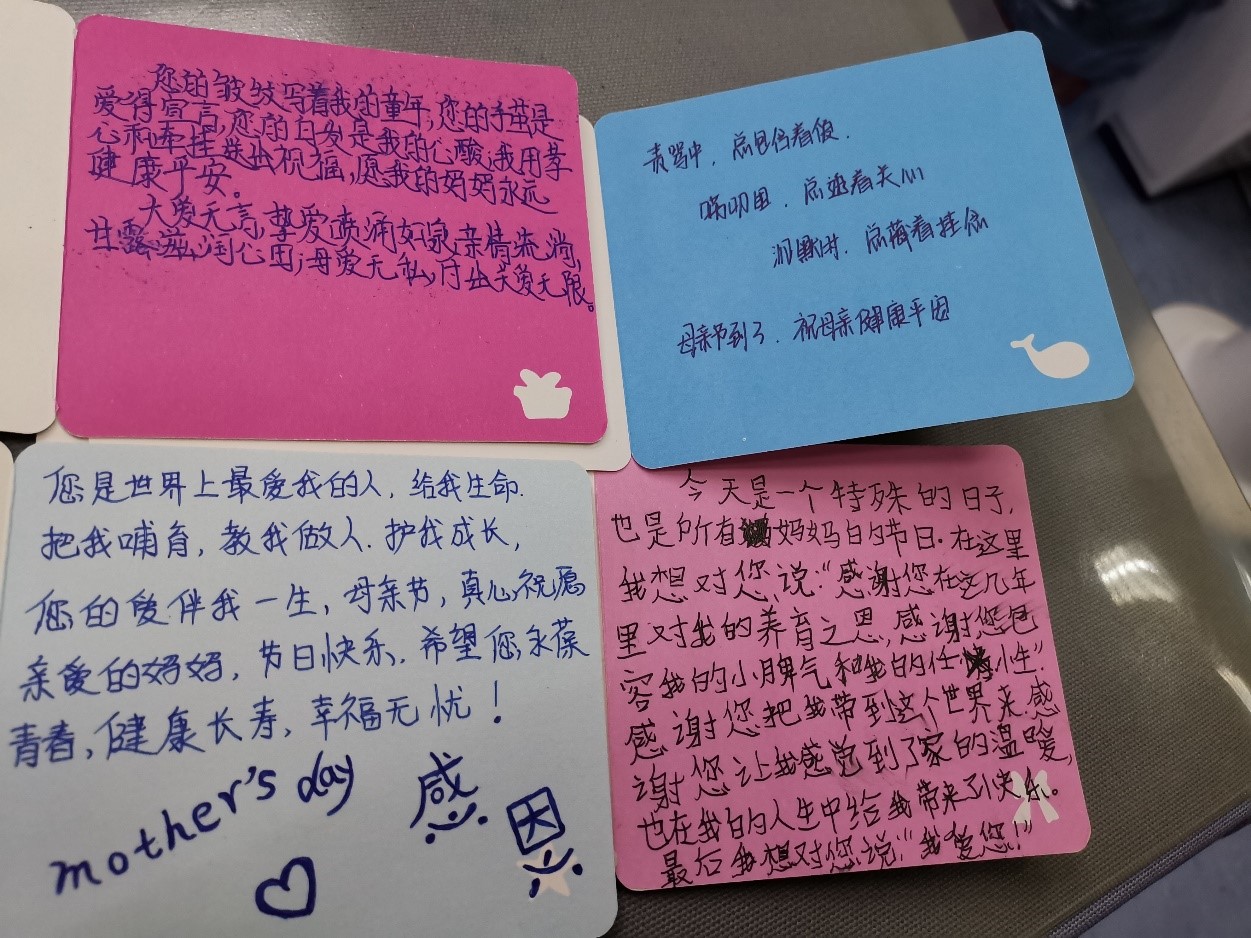 您的皱纹写着我的童年，您的手茧是
爱得宣言，您的白发是我的心酸，我用孝
心和牵挂送出祝福，愿我的妈妈永远
健康平安。
大爱无言，挚爱喷涌如泉，亲情流淌，
甘露滋润心田，母爱无私，付出关爱无限。
责骂中，总包含着
唠叨里，总透着关心
沉默时，总藏着挂念
母亲节到了，祝母亲健康平
您是世界上最爱我的人，给我生命.
把我哺育，教我做人.护我成长，
您的爱伴我一生，母亲节，真心祝愿
亲爱的妈妈，节日快乐.希望您永葆
青春，健康长寿，幸福无忧！
mother's day
感
因
今天是一个特殊的日子，
也是所有妈妈的节日.在这里
我想对您说:“感谢您在这几年
里对我的养育之恩，感谢您包
容我的小脾气和我的任小性”.
感谢您把我带到这个世界来.感
谢您让我感觉到了家的温暖，
也在我的人生中给我带来了快乐。
最后我想对您说:“我爱您！”